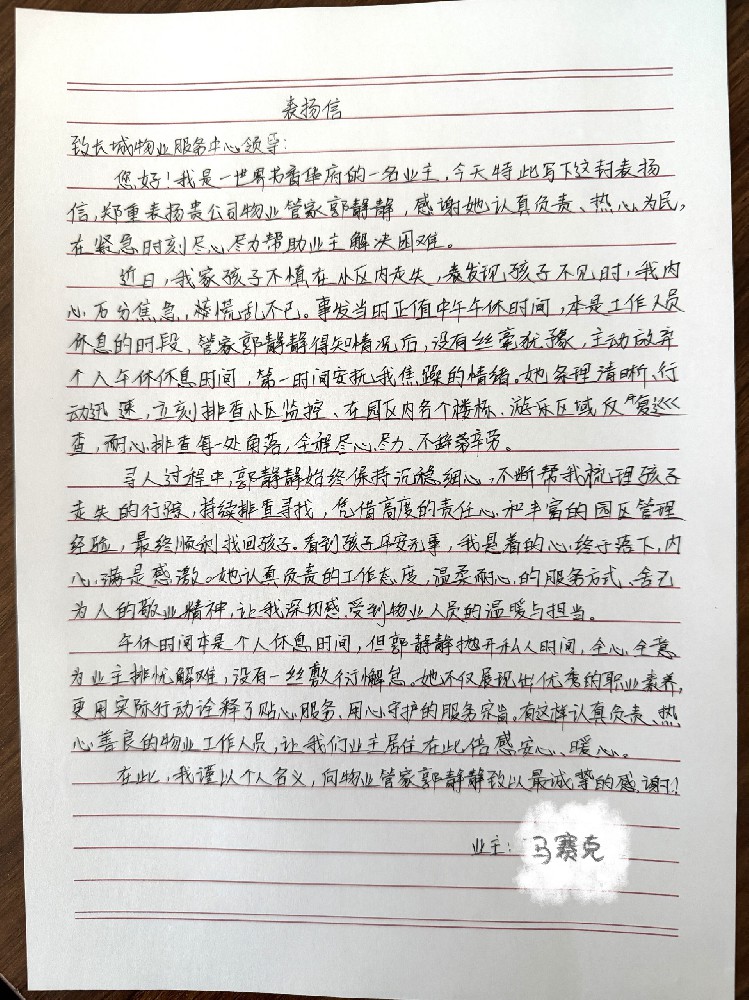 表扬信
致长城物业服务中心领导:
您好!我是一世界书香华府的一名业主,今天特此写下这封表扬
信,郑重表扬贵公司物业管家郭静静,感谢她认真负责、热心为民,
在紧急时刻尽心尽力帮助业主解决困难。
近日,我家孩子不慎在小区内走失,发现孩子不见时,我内
心万分焦急,慌乱不已。事发当时正值中午午休时间,本是工作人员
休息的时段,管家郭静静得知情况后,没有丝毫犹豫,主动放弃
个人午休休息时间,第一时间安抚我焦躁的情绪。她条理清晰、行
动迅速,立刻排查小区监控、在园区内各个楼栋、游乐区域反复巡
查,耐心排查每一处角落,全程尽心尽力、不辞劳辛劳。
寻人过程中,郭静静始终保持沉稳细心,不断帮我梳理孩子
走失的行踪,持续排查寻找,凭借高度的责任心和丰富的园区管理
经验,最终顺利找回孩子。看到孩子平安无事,我悬着的心终于落下,内
心满是感激。她认真负责的工作态度,温柔耐心的服务方式、舍己
为人的敬业精神,让我深切感受到物业人员的温暖与担当。
午休时间本是个人休息时间,但郭静静抛开私人时间,全心全意
为业主排忧解难,没有一丝敷衍懈怠。她不仅展现出优秀的职业素养,
更用实际行动诠释了贴心服务、用心守护的服务宗旨。有这样认真负责、热
心善良的物业工作人员,让我们业主居住在此倍感安心、暖心。
在此,我谨以个人名义,向物业管家郭静静致以最诚挚的感谢!
业主:马赛克